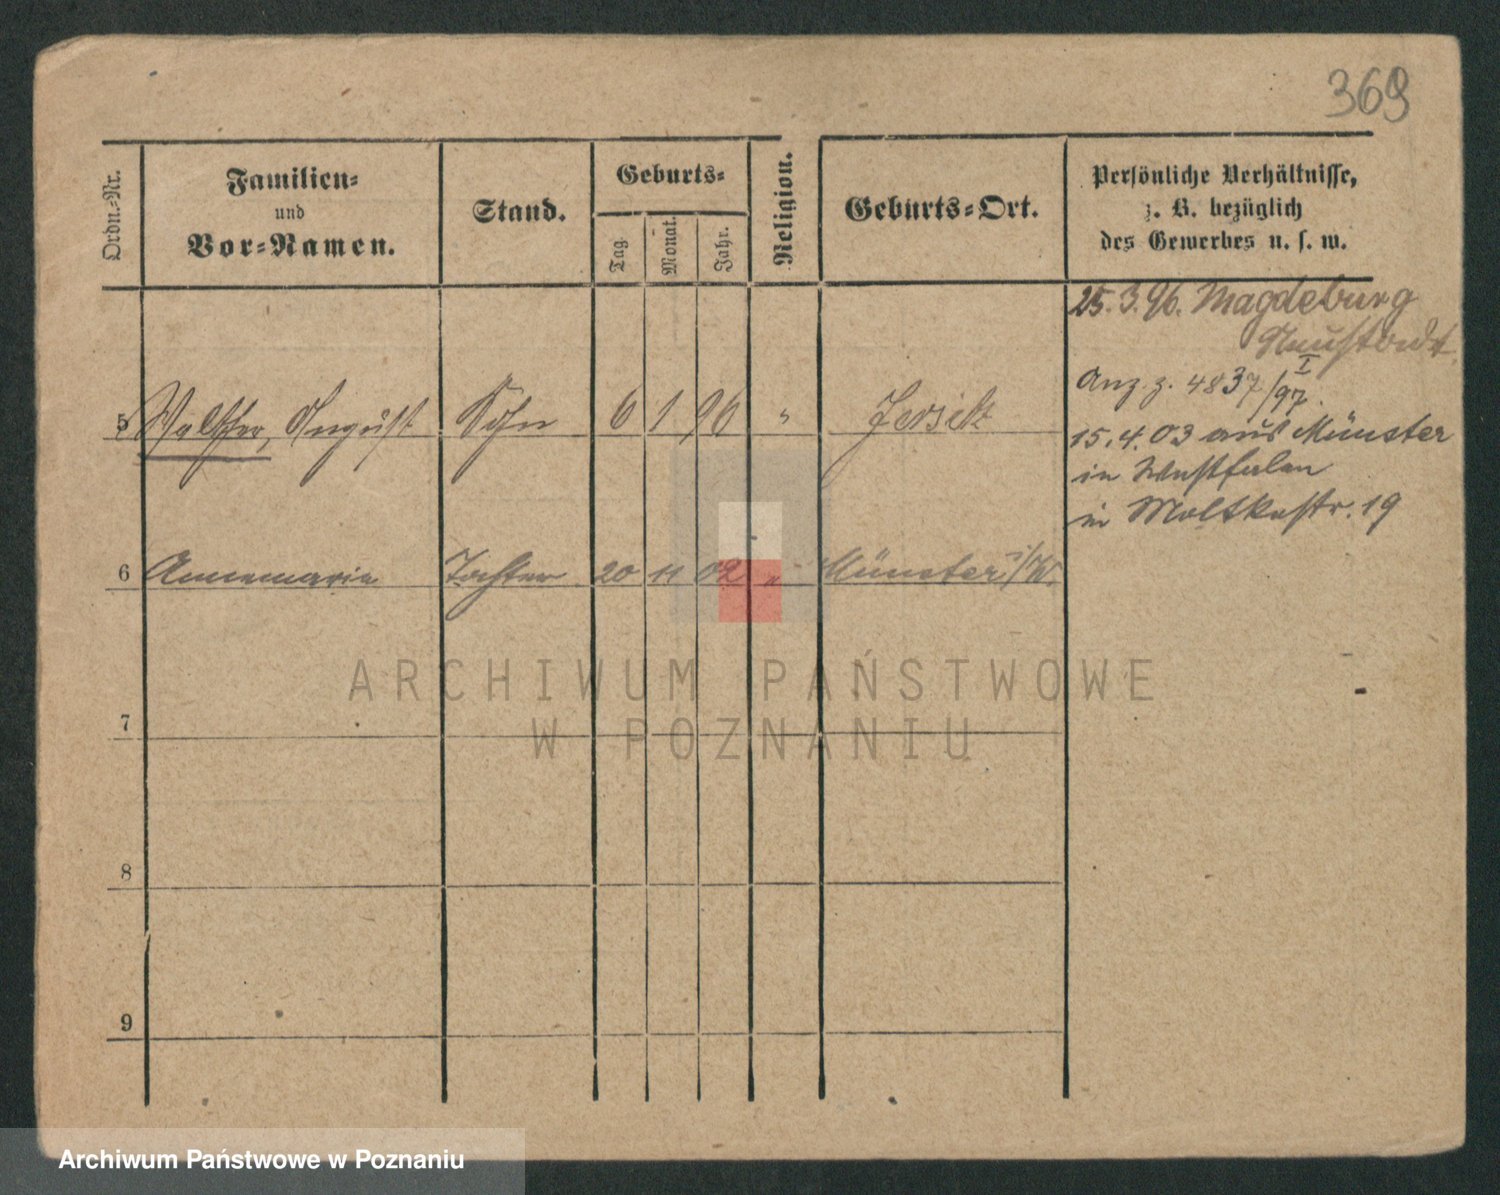 369
Ordn.-Nr.
Familien-
und
Vor-Namen.
Stand.
Geburts-
Tag.
Monat.
Jahr.
Religion.
Geburts-Ort.
Persönliche Verhältnisse,
z. B. bezüglich
des Gewerbes u. s. w.
25.3.96. Magdeburg
Neustadt.
Anz. z. 4837/97. I
5 Walther, August Sohn 6 1 96 " Jersitz
15.4.03 aus Münster
in Westfalen
in Moltkestr. 19
6 Annemarie Tochter 20 11 02 " Münster i/W.
7
8
9
ARCHIWUM PAŃSTWOWE
W POZNANIU
Archiwum Państwowe w Poznaniu